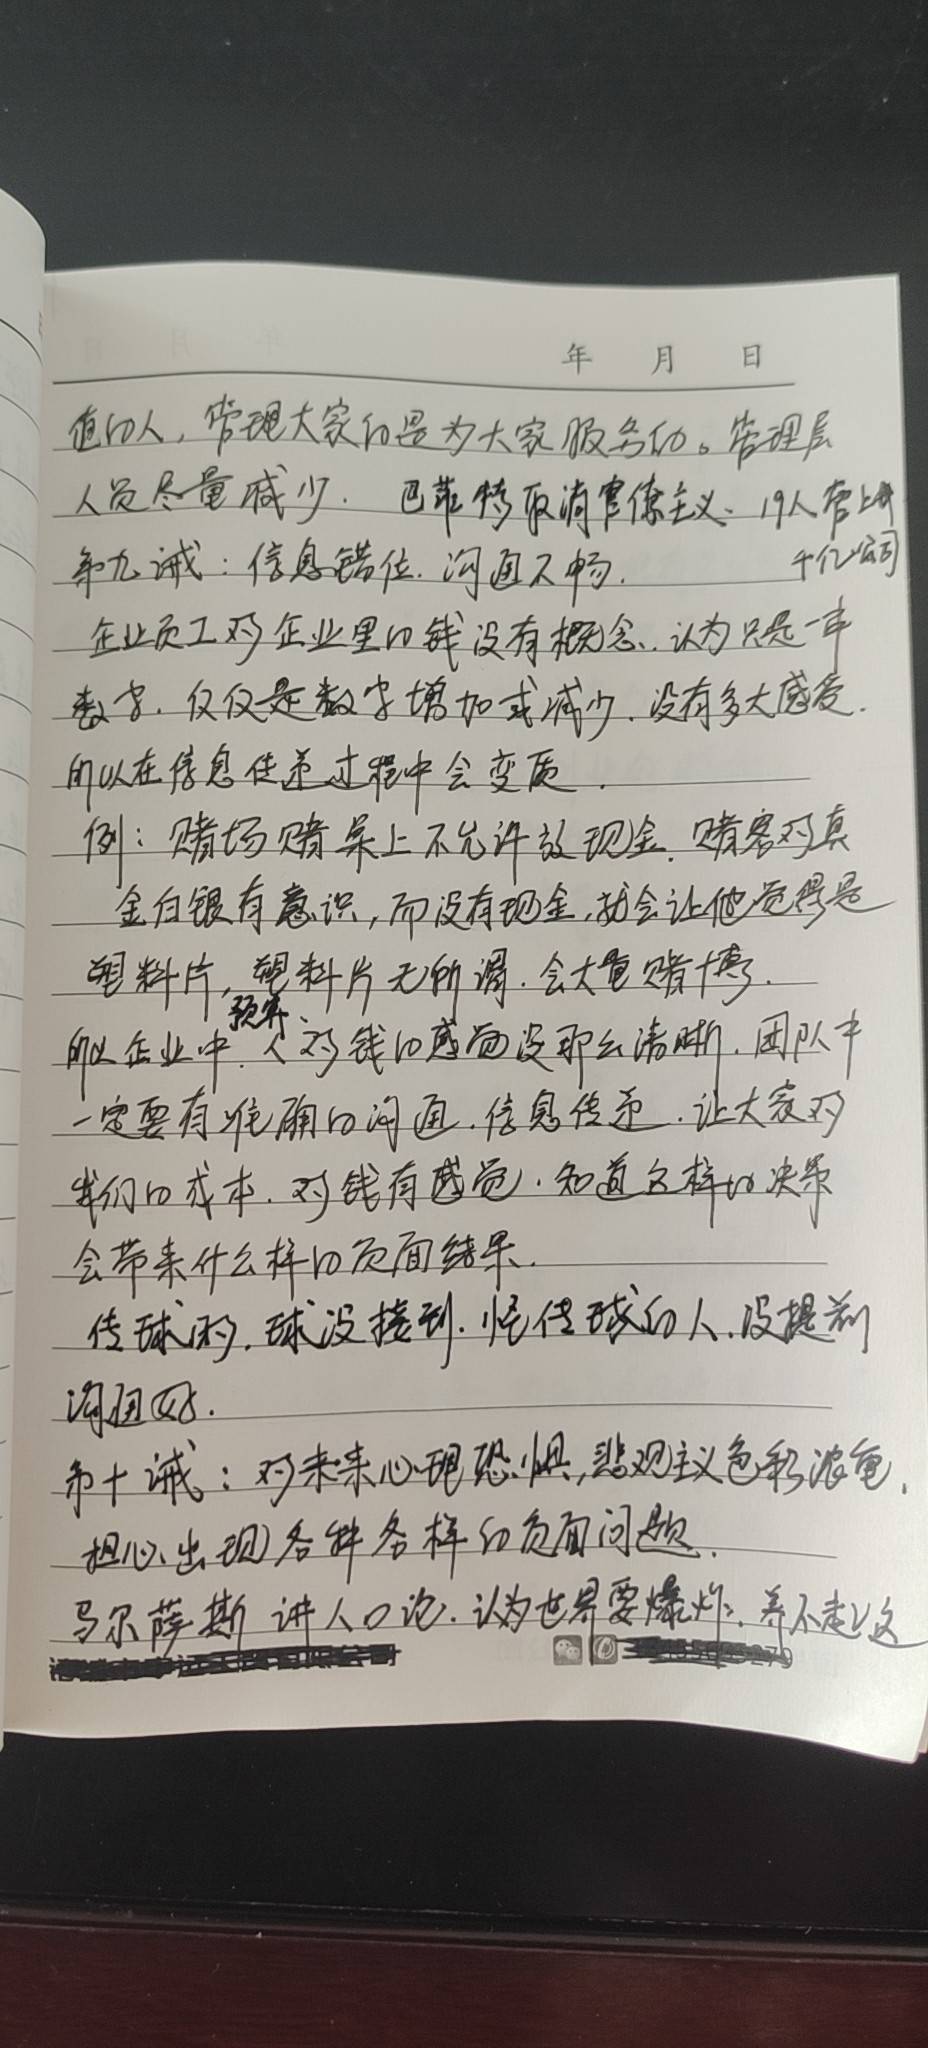 年 月 日
值的人，管理大家的是为大家服务的。管理层
人员尽量减少. 巴菲特取消官僚主义、19人管上市
千亿公司
第九诫：信息错位.沟通不畅.
企业员工对企业里的钱没有概念.认为只是一串
数字.仅仅是数字增加或减少.没有多大感受.
所以在信息传递过程中会变质.
例：赌场赌桌上不允许放现金.赌客对真
金白银有意识,而没有现金,就会让他觉得是
塑料片,塑料片无所谓.会大量赌博.
预算、
所以企业中.人对钱的感觉没那么清晰.团队中
一定要有准确的沟通.信息传递.让大家对
我们的成本.对钱有感觉.知道这样的决策
会带来什么样的负面结果.
传球的.球没接到.怪传球的人.没提前
沟通好.
第十诫：对未来心理恐惧,悲观主义色彩浓重.
担心出现各种各样的负面问题.
马尔萨斯讲人口论.认为世界要爆炸.养不起这